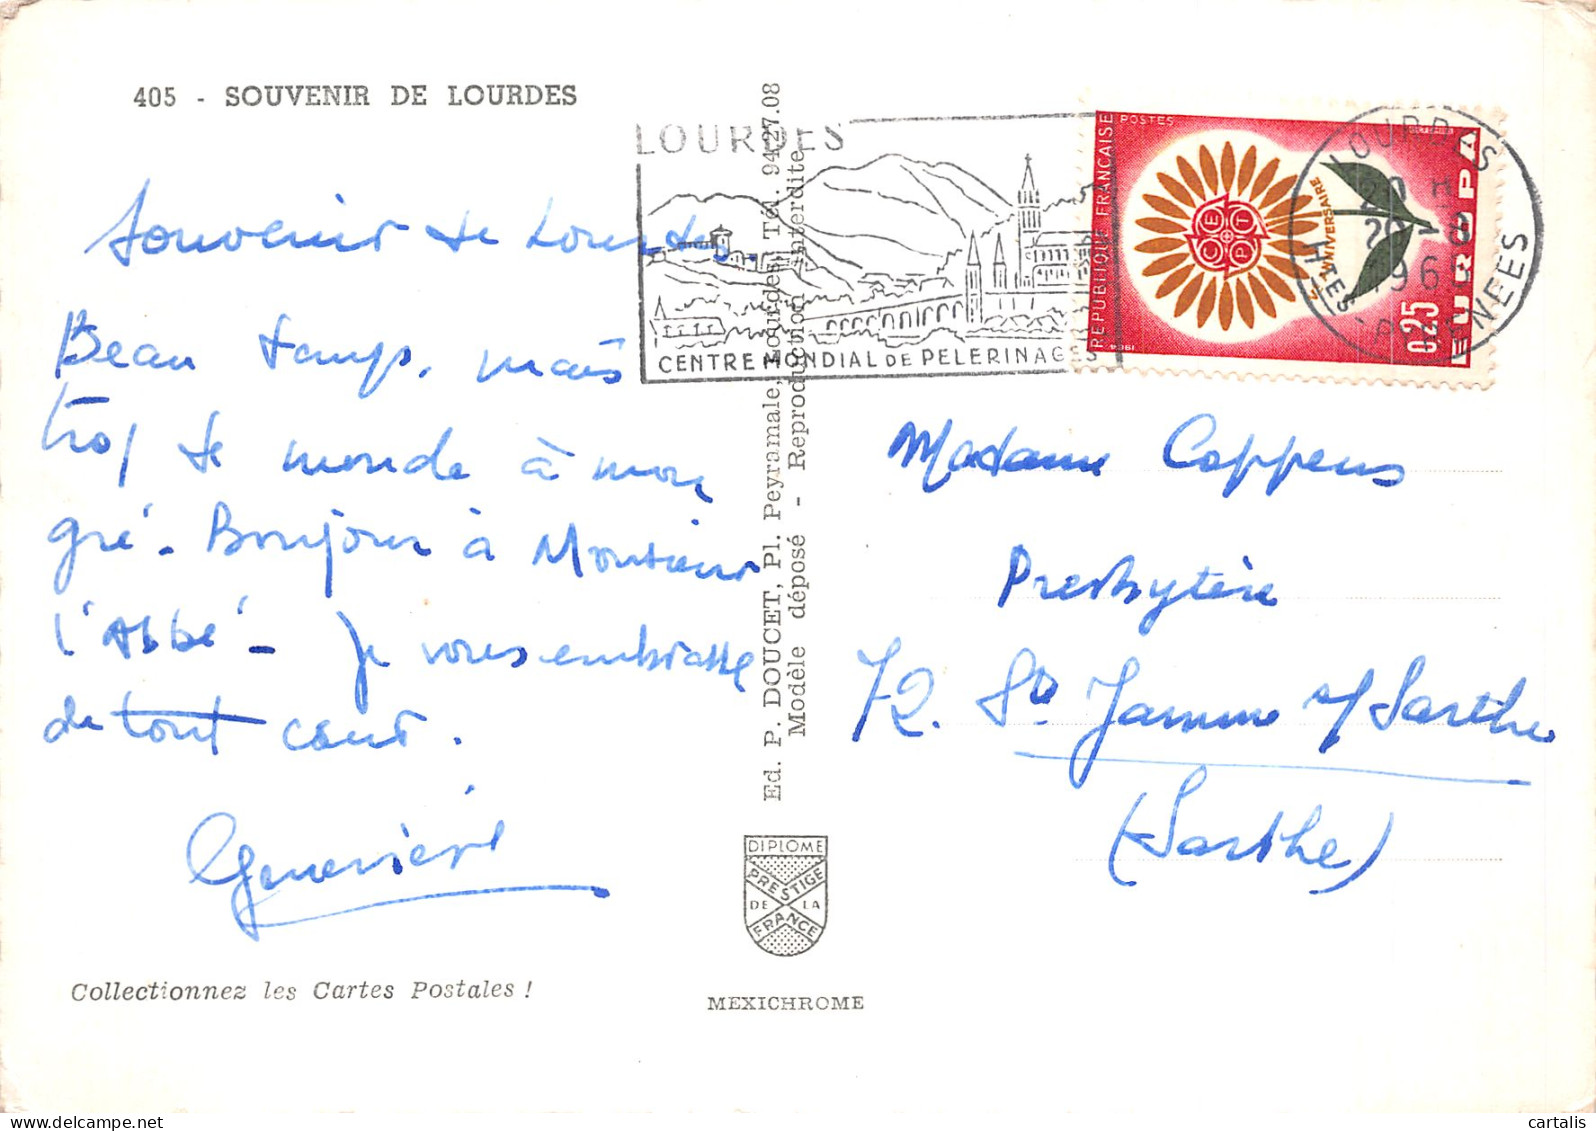 405 - SOUVENIR DE LOURDES
Souvenir de Lourdes.
Beau temps, mais
trop de monde à mon
gré - Bonjour à Monsieur
l'Abbé - Je vous embrasse
de tout cœur.
Geneviève
Collectionnez les Cartes Postales !
Ed. P. DOUCET, Pl. Peyramale, Lourdes, Tél. 94.27.08
Modèle déposé - Reproduction interdite
DIPLOME
PRESTIGE
DE LA
FRANCE
MEXICHROME
LOURDES
CENTRE MONDIAL DE PELERINAGES
REPUBLIQUE FRANÇAISE
POSTES
CEPT
Ve ANNIVERSAIRE
EUROPA
0,25
1964
LOURDES
HTES-PYRENEES
Madame Coppens
Presbytère
72. St Jamme s/ Sarthe
(Sarthe)
cartalis